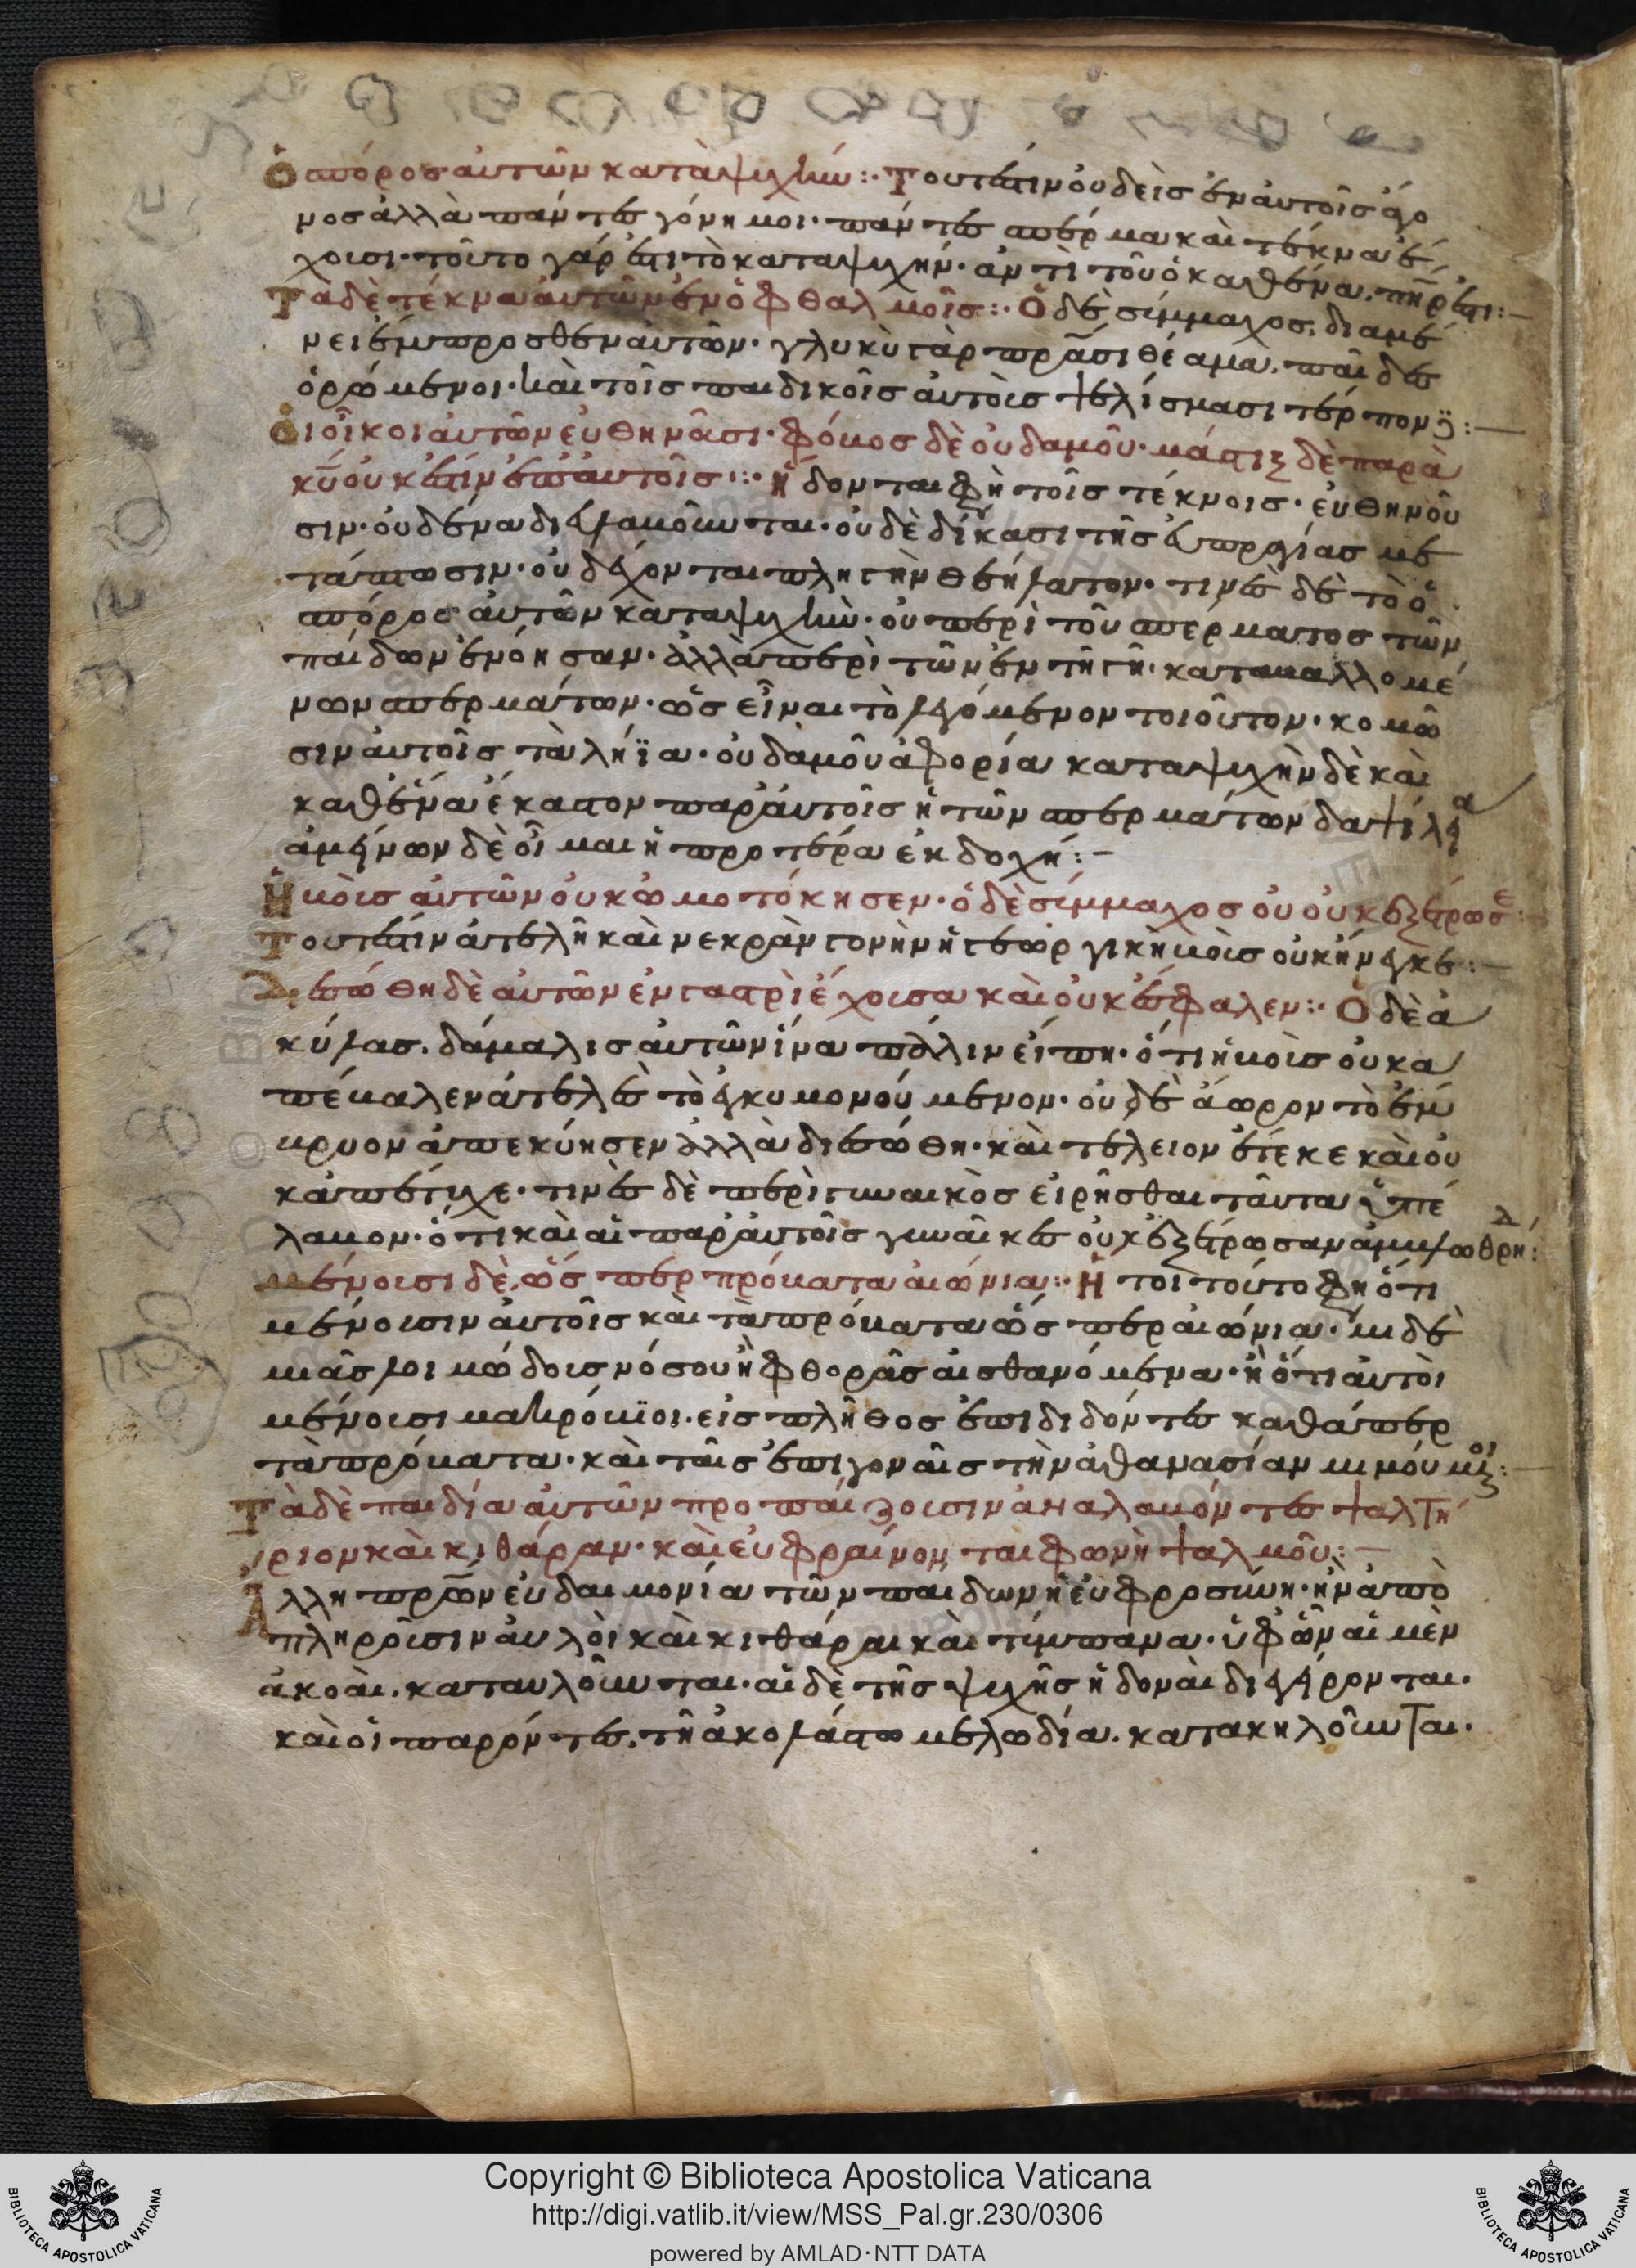 Ὁ σπόρος αὐτῶν κατὰ ψυχήν:· Τουτέστιν οὐδεὶς ἐν αὐτοῖς ἄγο
νος ἀλλὰ πάντες γόνιμοι· πάντες σπέρμα καὶ τέκνα ἔ
χουσι· τοῦτο γάρ ἐστι τὸ κατὰ ψυχήν· ἀντὶ τοῦ ὁ καθένα
Τὰ δὲ τέκνα αὐτῶν ἐν ὀφθαλμοῖς:· Ὁ δὲ σύμμαχος, διαμέ
νει ἔμπροσθεν αὐτῶν· γλυκὺ γὰρ πρᾶσι θέαμα, παῖδες
ὁρώμενοι· καὶ τοῖς παιδικοῖς αὐτοῖς ψελίσμασι τέρποντ:
Οἱ οἶκοι αὐτῶν εὐθηνοῦσι· φόβος δὲ οὐδαμοῦ· μάστιξ δὲ παρὰ
κυ οὐκ ἔστιν ἐπ' αὐτοῖς:· ἥδονται φη τοῖς τέκνοις· εὐθηνοῦ
σιν· οὐδένα διευλαβοῦνται· οὐδὲ δίκασι τῆς εὐπραγίας με
τάπτωσιν· οὐ δέχονται πληγὴν θεήλατον· τινὲς δὲ τὸ ὁ
σπόρος αὐτῶν κατὰ ψυχὴν· οὐ περὶ τοῦ σπέρματος τῶν
παίδων ἐνόησαν· ἀλλὰ περὶ τῶν ἐν τῇ γῇ· καταβαλλομέ
νων σπερμάτων· ὡς εἶναι τὸ λεγόμενον τοιοῦτον· κομῶ
σιν αὐτοῖς τὰ λήϊα· οὐδαμοῦ ἀφορία κατὰ ψυχὴν δὲ καὶ
καθ' ἕνα ἕκαστον παρ' αὐτοῖς ἡ τῶν σπερμάτων δαψίλεια
ἀμείνων δὲ οἶμαι ἡ προτέρα ἐκδοχή:–
Ἡ βοῦς αὐτῶν οὐκ ὠμοτόκησεν· ὁ δὲ σύμμαχος οὐκ ἐξέτρωσε:
Τουτέστιν ἀτελῆ καὶ νεκρὰν γονὴν ἡ γεωργικὴ βοῦς οὐκ ἤνεγκε:–
Διεσώθη δὲ αὐτῶν ἐν γαστρὶ ἔχουσα καὶ οὐκ ἔσφαλεν:· Ὁ δὲ ἀ
κύλας. δάμαλις αὐτῶν ἵνα πάλιν εἴπῃ· ὅτι ἡ βοῦς οὐκ ἀ
πέβαλεν ἀτελὲς τὸ ἐγκυμονούμενον· οὐδὲ ἄωρον τὸ ἔμ
βρυον ἀπεκύησεν ἀλλὰ διεσώθη· καὶ τέλειον ἔτεκε καὶ οὐ
κ ἀπέτυχε· τινὲς δὲ περὶ γυναικὸς εἰρῆσθαι ταῦτα ὑπέ
λαβον· ὅτι καὶ αἱ παρ' αὐτοῖς γυναῖκες οὐκ ἐξέτρωσαν
μένουσι δὲ, ὥς περ πρόβατα αἰώνια:· Ἤτοι τοῦτο φη ὅτι
μένουσιν αὐτοῖς καὶ τὰ πρόβατα ὥς περ αἰώνια· μηδε
μιᾶς λοιμώδους νόσου ἢ φθορᾶς αἰσθανόμενα· ἢ ὅτι αὐτοὶ
μένουσι μακρόβϊοι. εἰς πλῆθος ἐπιδιδόντες καθάπερ
τὰ πρόβατα· καὶ ταῖς ἐπιγοναῖς τὴν ἀθανασίαν μιμούμενοι:–
Τὰ δὲ παιδία αὐτῶν προπαίζουσιν ἀναλαβόντες ψαλτή
ριον καὶ κιθάραν· καὶ εὐφραίνονται φωνῇ ψαλμοῦ:–
Ἄλλη πρῶν εὐδαιμονία τῶν παίδων ἡ εὐφροσύνη· ἣν ἀπο
πληροῦσιν αὐλοὶ καὶ κιθάραι καὶ τύμπανα· ὑφ' ὧν αἱ μὲν
ἀκοαὶ. καταυλοῦνται· αἱ δὲ τῆς ψυχῆς ἡδοναὶ διεγείρονται.
καὶ οἱ παρόντες. τῇ ἀκολάστω μελωδία. κατακηλοῦνται.
Copyright © Biblioteca Apostolica Vaticana
http://digi.vatlib.it/view/MSS_Pal.gr.230/0306
powered by AMLAD·NTT DATA
BIBLIOTECA APOSTOLICA VATICANA
BIBLIOTECA APOSTOLICA VATICANA